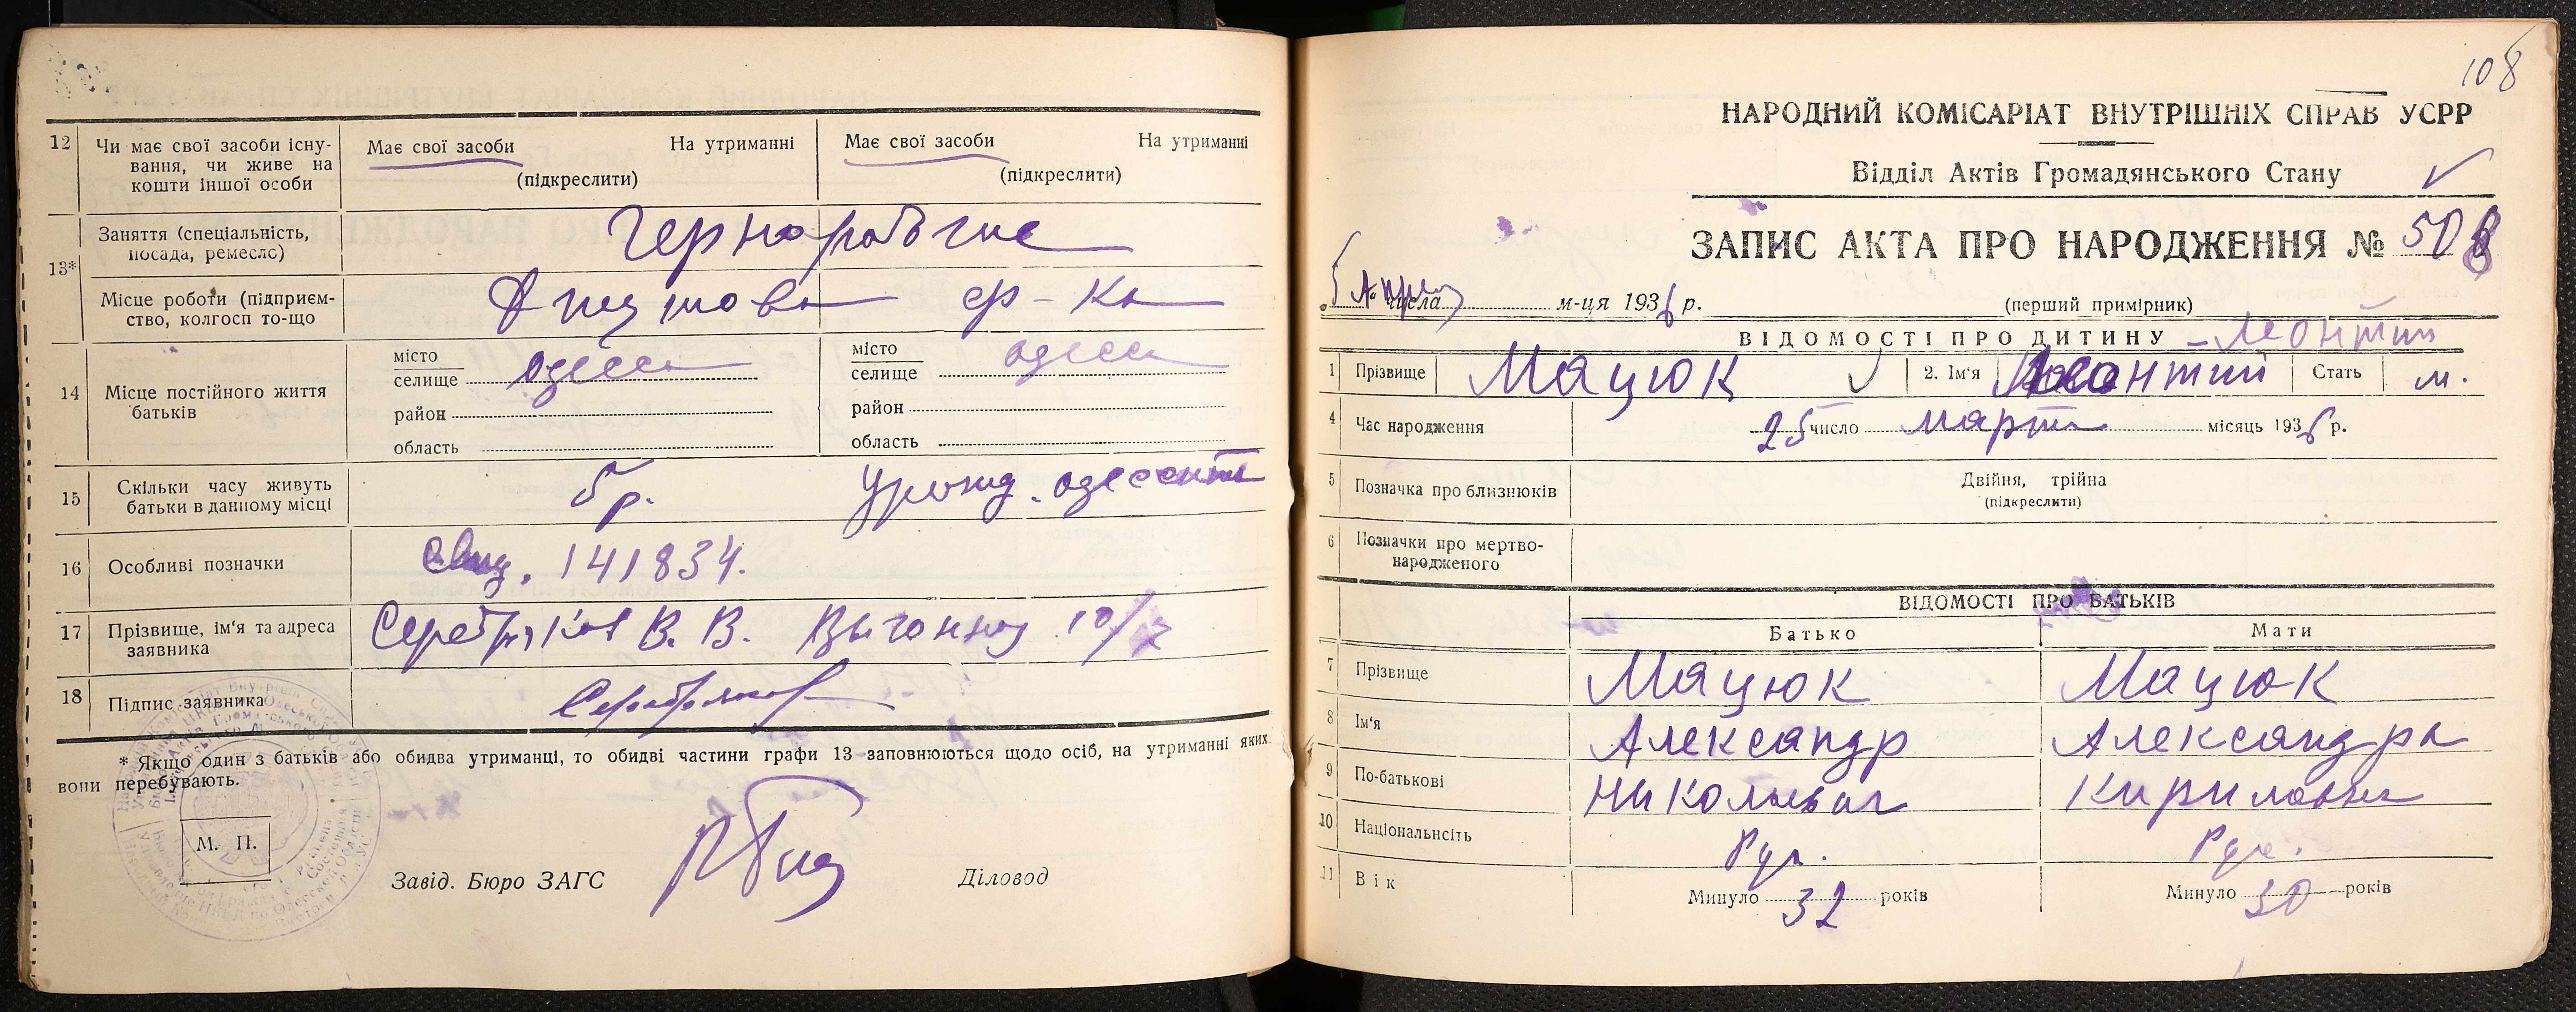 12
Чи має свої засоби існу-
вання, чи живе на
кошти іншої особи
Має свої засоби
На утриманні
(підкреслити)
Має свої засоби
На утриманні
(підкреслити)
13*
Заняття (спеціальність,
посада, ремесло)
Чернорабчие
Місце роботи (підприєм-
ство, колгосп то-що
Джутова ф-ка
14
Місце постійного життя
батьків
місто
селище
Одесса
район
область
місто
селище
Одесса
район
область
15
Скільки часу живуть
батьки в данному місці
5 р.
Урожд. одессит
16
Особливі позначки
Свид. 141834.
17
Прізвище, ім'я та адреса
заявника
Серебряков В. В. Выгонную 10/
18
Підпис заявника
Серебряков
* Якщо один з батьків або обидва утриманці, то обидві частини графи 13 заповнюються щодо осіб, на утриманні яких
вони перебувають.
М. П.
Завід. Бюро ЗАГС
Діловод
108
НАРОДНИЙ КОМІСАРІАТ ВНУТРІШНІХ СПРАВ УСРР
Відділ Актів Громадянського Стану
ЗАПИС АКТА ПРО НАРОДЖЕННЯ № 508
5 числа м-ця 1936 р.
(перший примірник)
ВІДОМОСТІ ПРО ДИТИНУ – Леонтий
1 Прізвище Мацюк
2. Ім'я Леонтий
Стать м.
4 Час народження 25 число марта місяць 1936 р.
5 Позначка про близнюків
Двійня, трійня
(підкреслити)
6 Позначки про мертво-
народженого
ВІДОМОСТІ ПРО БАТЬКІВ
Батько
Мати
7 Прізвище Мацюк Мацюк
8 Ім'я Александр Александра
9 По-батькові Николаевич Кириловна
10 Національнсіть Рус. Рус.
11 Вік Минуло 32 років Минуло 30 років